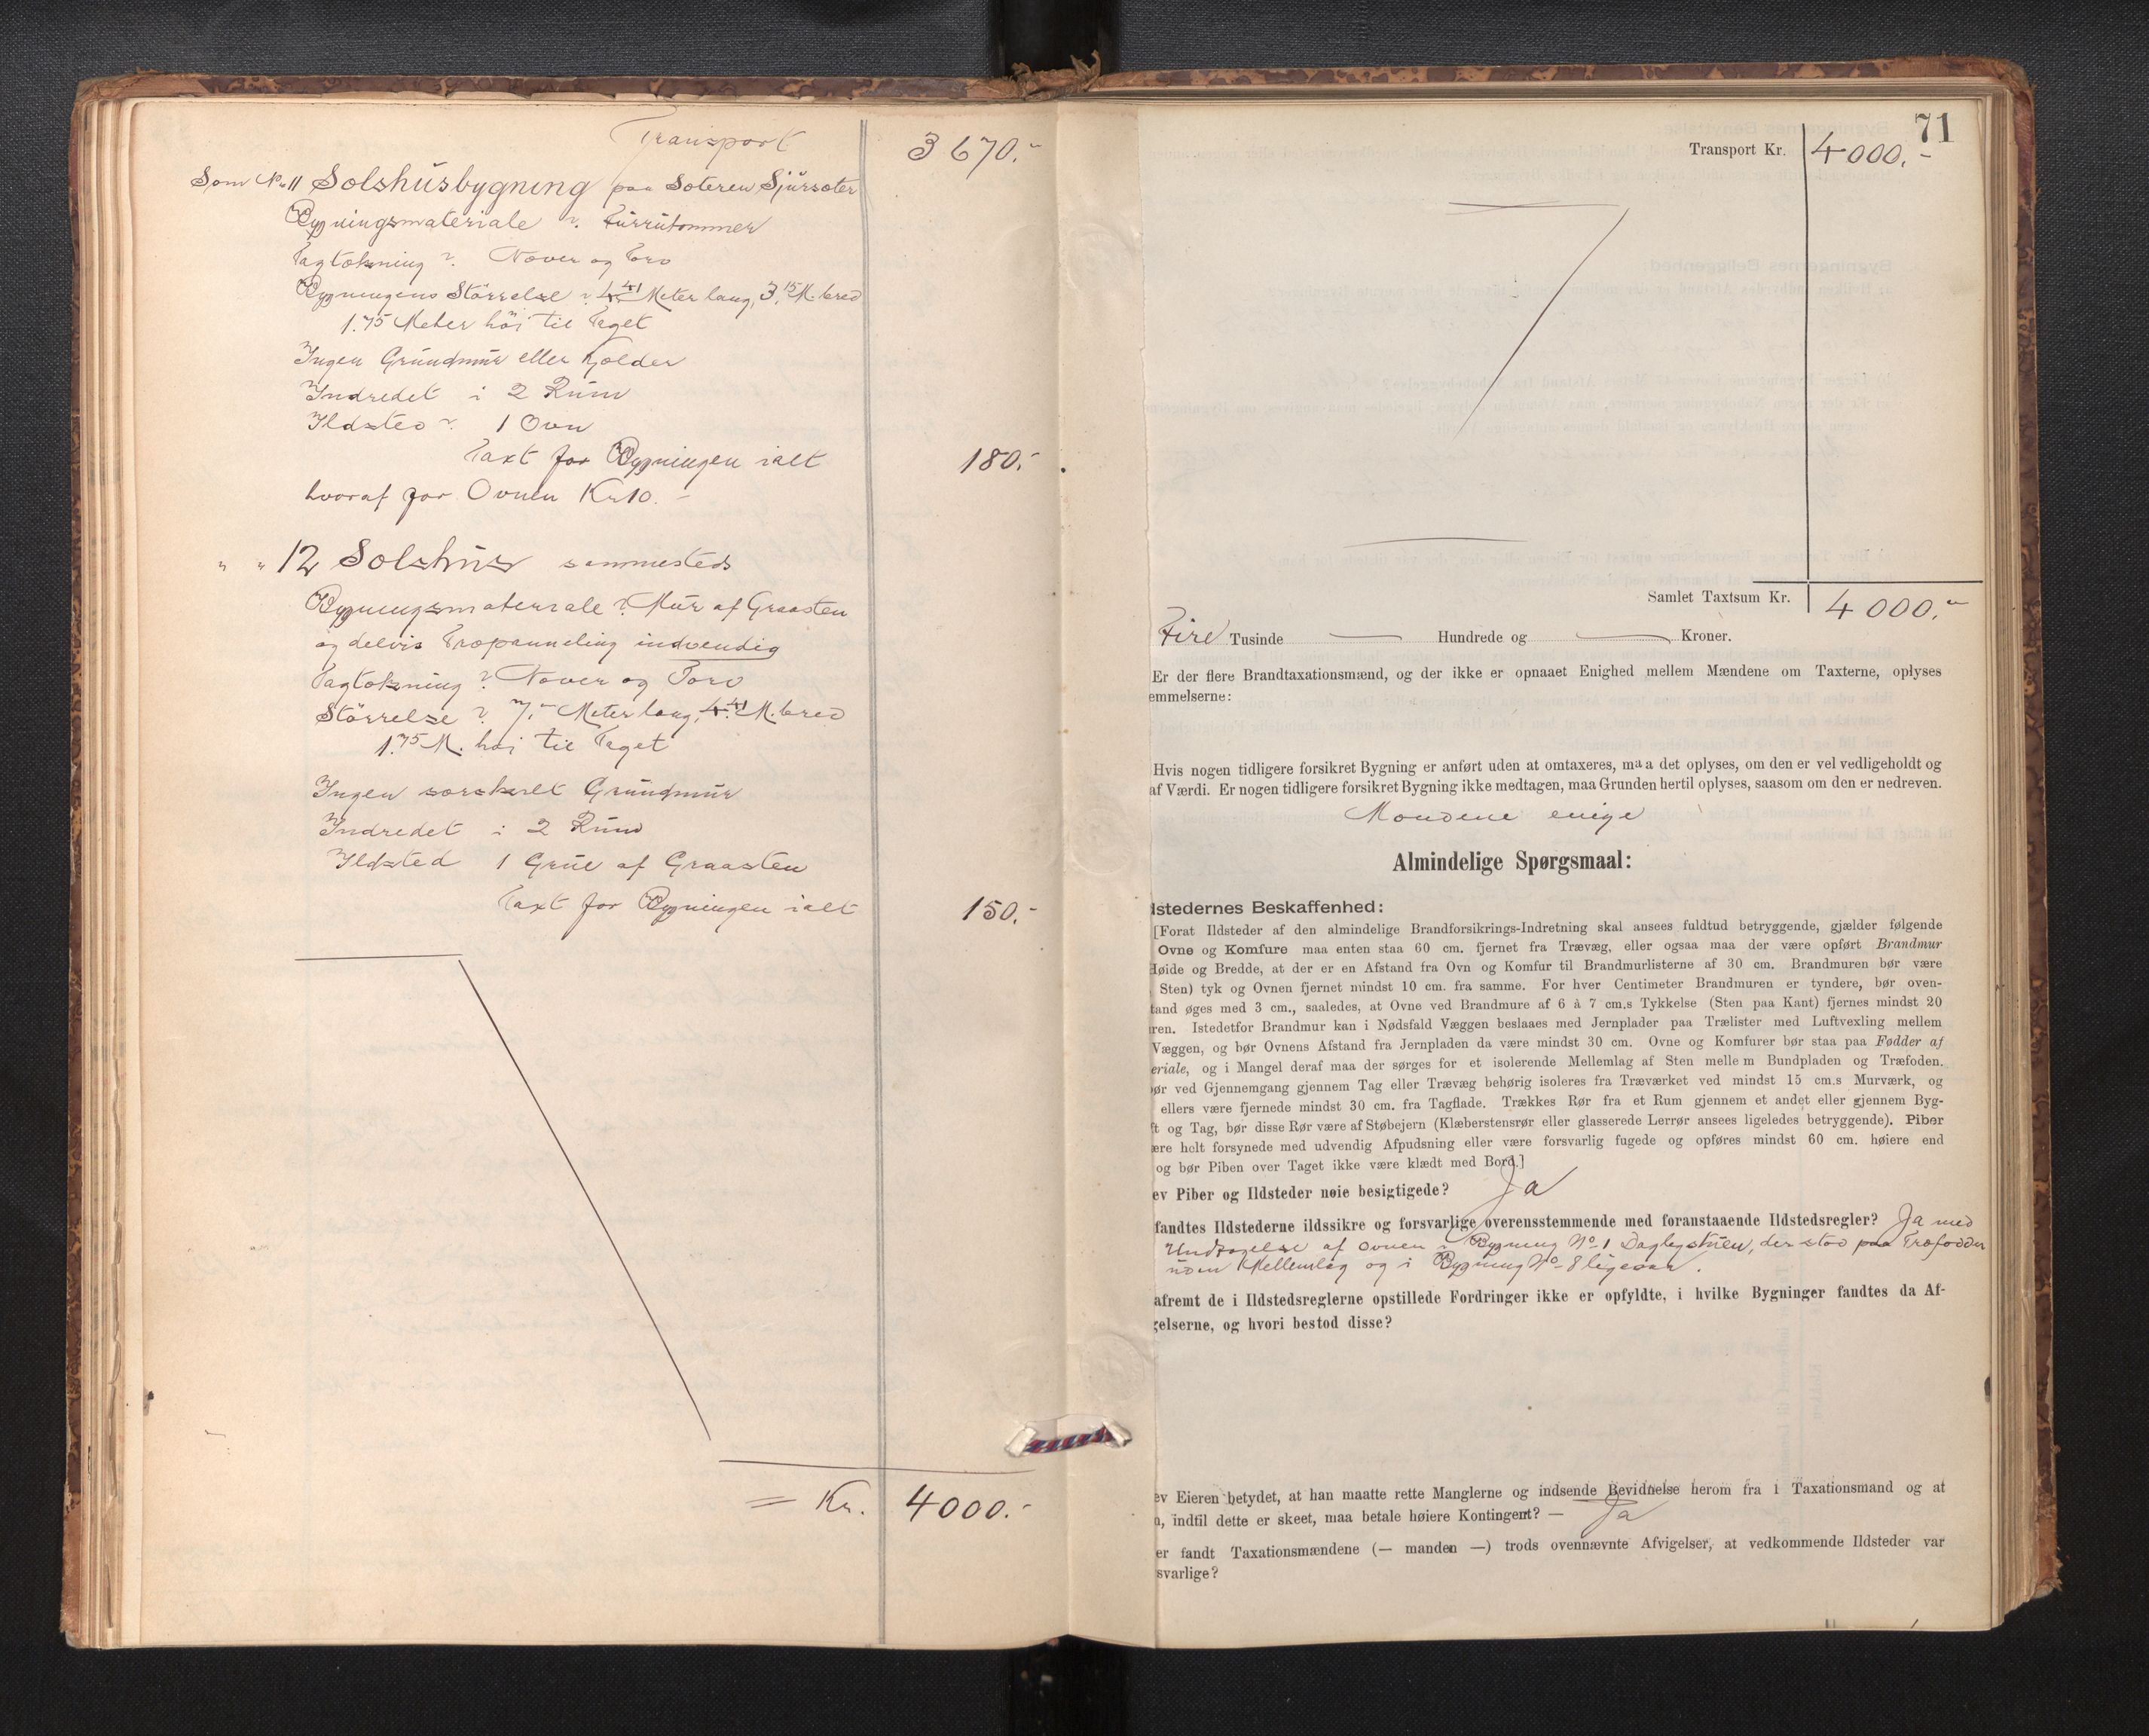 Transport 3670.-
Som No 11 Selshusbygning paa Sæteren Sjursæter
Bygningsmateriale? Furrutømmer
Tagtækning? Næver og Torv
Bygningens Størrelse? 4.41 Meter lang, 3.15 M. bred
1.75 Meter høi til Taget
Ingen Grundmur eller Kjelder
Indredet i 2 Rum
Ildsted? 1 Ovn
Taxt for Bygningen ialt 180.-
hvoraf for Ovnen Kr 10.-
" " 12 Selshus sammesteds
Bygningsmateriale? Mur af Graasten
og delvis Træpanneling indvendig
Tagtækning? Næver og Torv
Størrelse? 7.- Meter lang, 4.41 M. bred
1.75 M. høi til Taget
Ingen særskilt Grundmur
Indredet i 2 Rum
Ildsted 1 Grue af Graasten
Taxt for Bygningen ialt 150.-
= Kr. 4000.-
71
Transport Kr. 4000.-
Samlet Taxtsum Kr. 4000.-
Fire Tusinde — Hundrede og — Kroner.
Er der flere Brandtaxationsmænd, og der ikke er opnaaet Enighed mellem Mændene om Taxterne, oplyses
emmelserne:
Hvis nogen tidligere forsikret Bygning er anført uden at omtaxeres, maa det oplyses, om den er vel vedligeholdt og
af Værdi. Er nogen tidligere forsikret Bygning ikke medtagen, maa Grunden hertil oplyses, saasom om den er nedreven.
Mændene enige
Almindelige Spørgsmaal:
ldstedernes Beskaffenhed:
[Forat Ildsteder af den almindelige Brandforsikrings-Indretning skal ansees fuldtud betryggende, gjælder følgende
Ovne og Komfure maa enten staa 60 cm. fjernet fra Trævæg, eller ogsaa maa der være opført Brandmur
Høide og Bredde, at der er en Afstand fra Ovn og Komfur til Brandmurlisterne af 30 cm. Brandmuren bør være
Sten) tyk og Ovnen fjernet mindst 10 cm. fra samme. For hver Centimeter Brandmuren er tyndere, bør oven-
tand øges med 3 cm., saaledes, at Ovne ved Brandmure af 6 à 7 cm.s Tykkelse (Sten paa Kant) fjernes mindst 20
uren. Istedetfor Brandmur kan i Nødsfald Væggen beslaaes med Jernplader paa Trælister med Luftvexling mellem
Væggen, og bør Ovnens Afstand fra Jernpladen da være mindst 30 cm. Ovne og Komfurer bør staa paa Fødder af
eriale, og i Mangel deraf maa der sørges for et isolerende Mellemlag af Sten mellem Bundpladen og Træfoden.
ør ved Gjennemgang gjennem Tag eller Trævæg behørig isoleres fra Træværket ved mindst 15 cm.s Murværk, og
ellers være fjernede mindst 30 cm. fra Tagflade. Trækkes Rør fra et Rum gjennem et andet eller gjennem Byg-
ft og Tag, bør disse Rør være af Støbejern (Klæberstensrør eller glasserede Lerrør ansees ligeledes betryggende). Piber
ære helt forsynede med udvendig Afpudsning eller være forsvarlig fugede og opføres mindst 60 cm. høiere end
og bør Piben over Taget ikke være klædt med Bord.]
ev Piber og Ildsteder nøie besigtigede? Ja
fandtes Ildstederne ildssikre og forsvarlige overensstemmende med foranstaaende Ildstedsregler? Ja med
Undtagelse af Ovnen i Bygning No 1 Dagligstuen, der stod paa Træfødder
uden Mellemlag og i Bygning No 8 ligesaa.
afremt de i Ildstedsreglerne opstillede Fordringer ikke er opfyldte, i hvilke Bygninger fandtes da Af-
gelserne, og hvori bestod disse?
ev Eieren betydet, at han maatte rette Manglerne og indsende Bevidnelse herom fra 1 Taxationsmand og at
n, indtil dette er skeet, maa betale høiere Kontingent? — Ja
er fandt Taxationsmændene (— manden —) trods ovennævnte Afvigelser, at vedkommende Ildsteder var
svarlige?